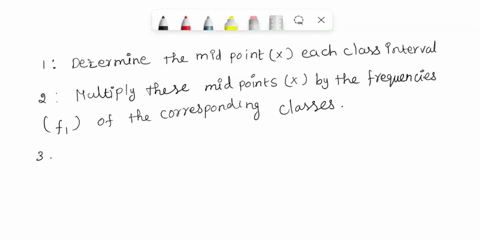 1: Determine the mid point (x) each class interval
2: Multiply these mid points (x) by the frequencies
(f1) of the corresponding classes.
3.